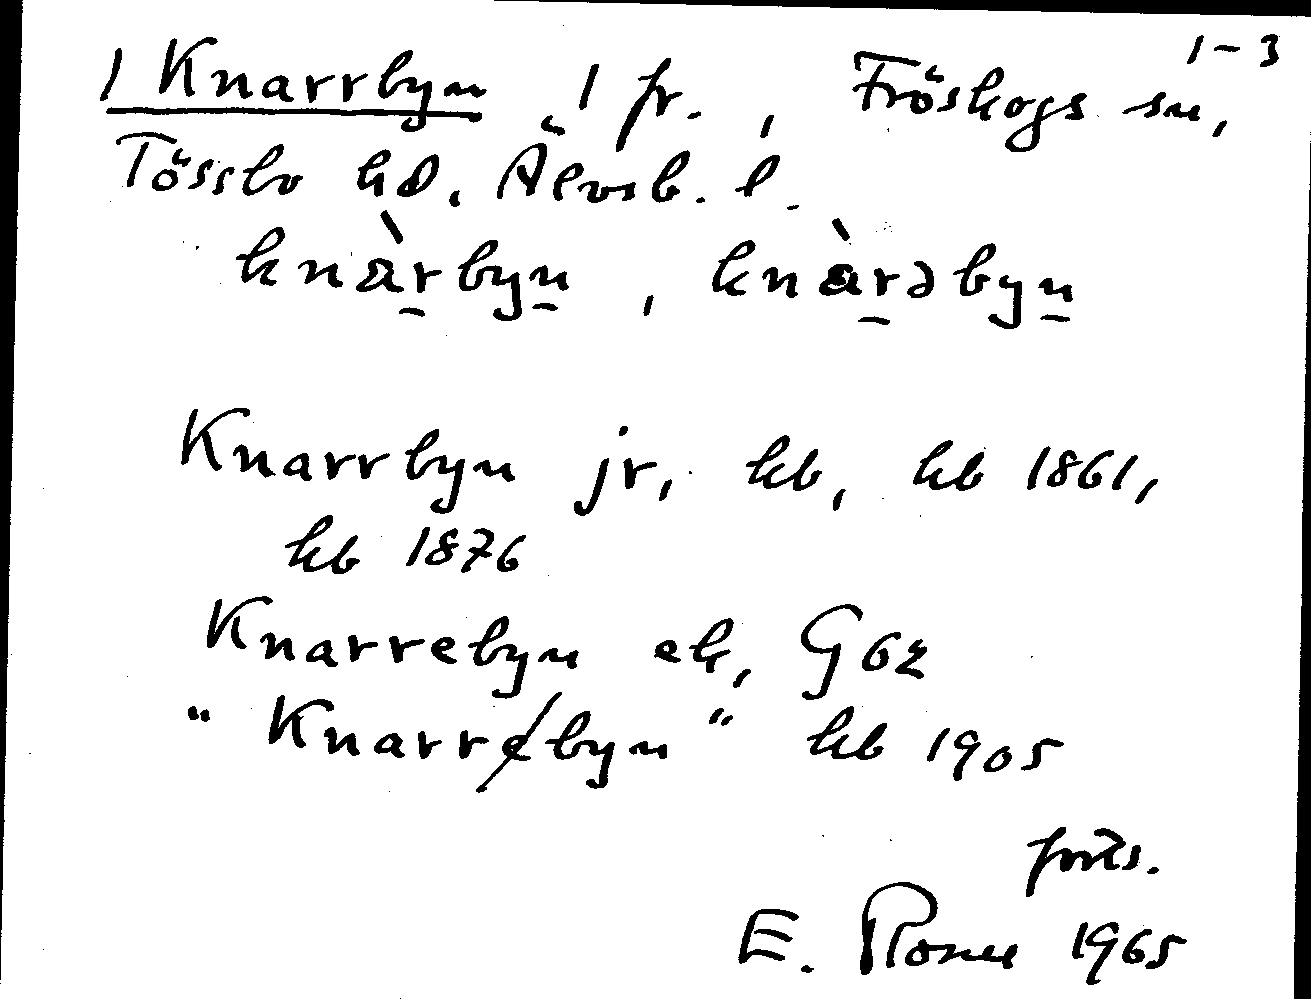 1-3
1 Knarrbyn, 1 fr., Fröskogs sn,
Tössbo hd. Älvsb. l.
knàrbyn, knàrəbyn
Knarrbyn jr, kb, hb 1861,
hb 1876
Knarrebyn ek, G 62
"Knarrebyn" hb 1905
forts.
E. 1965